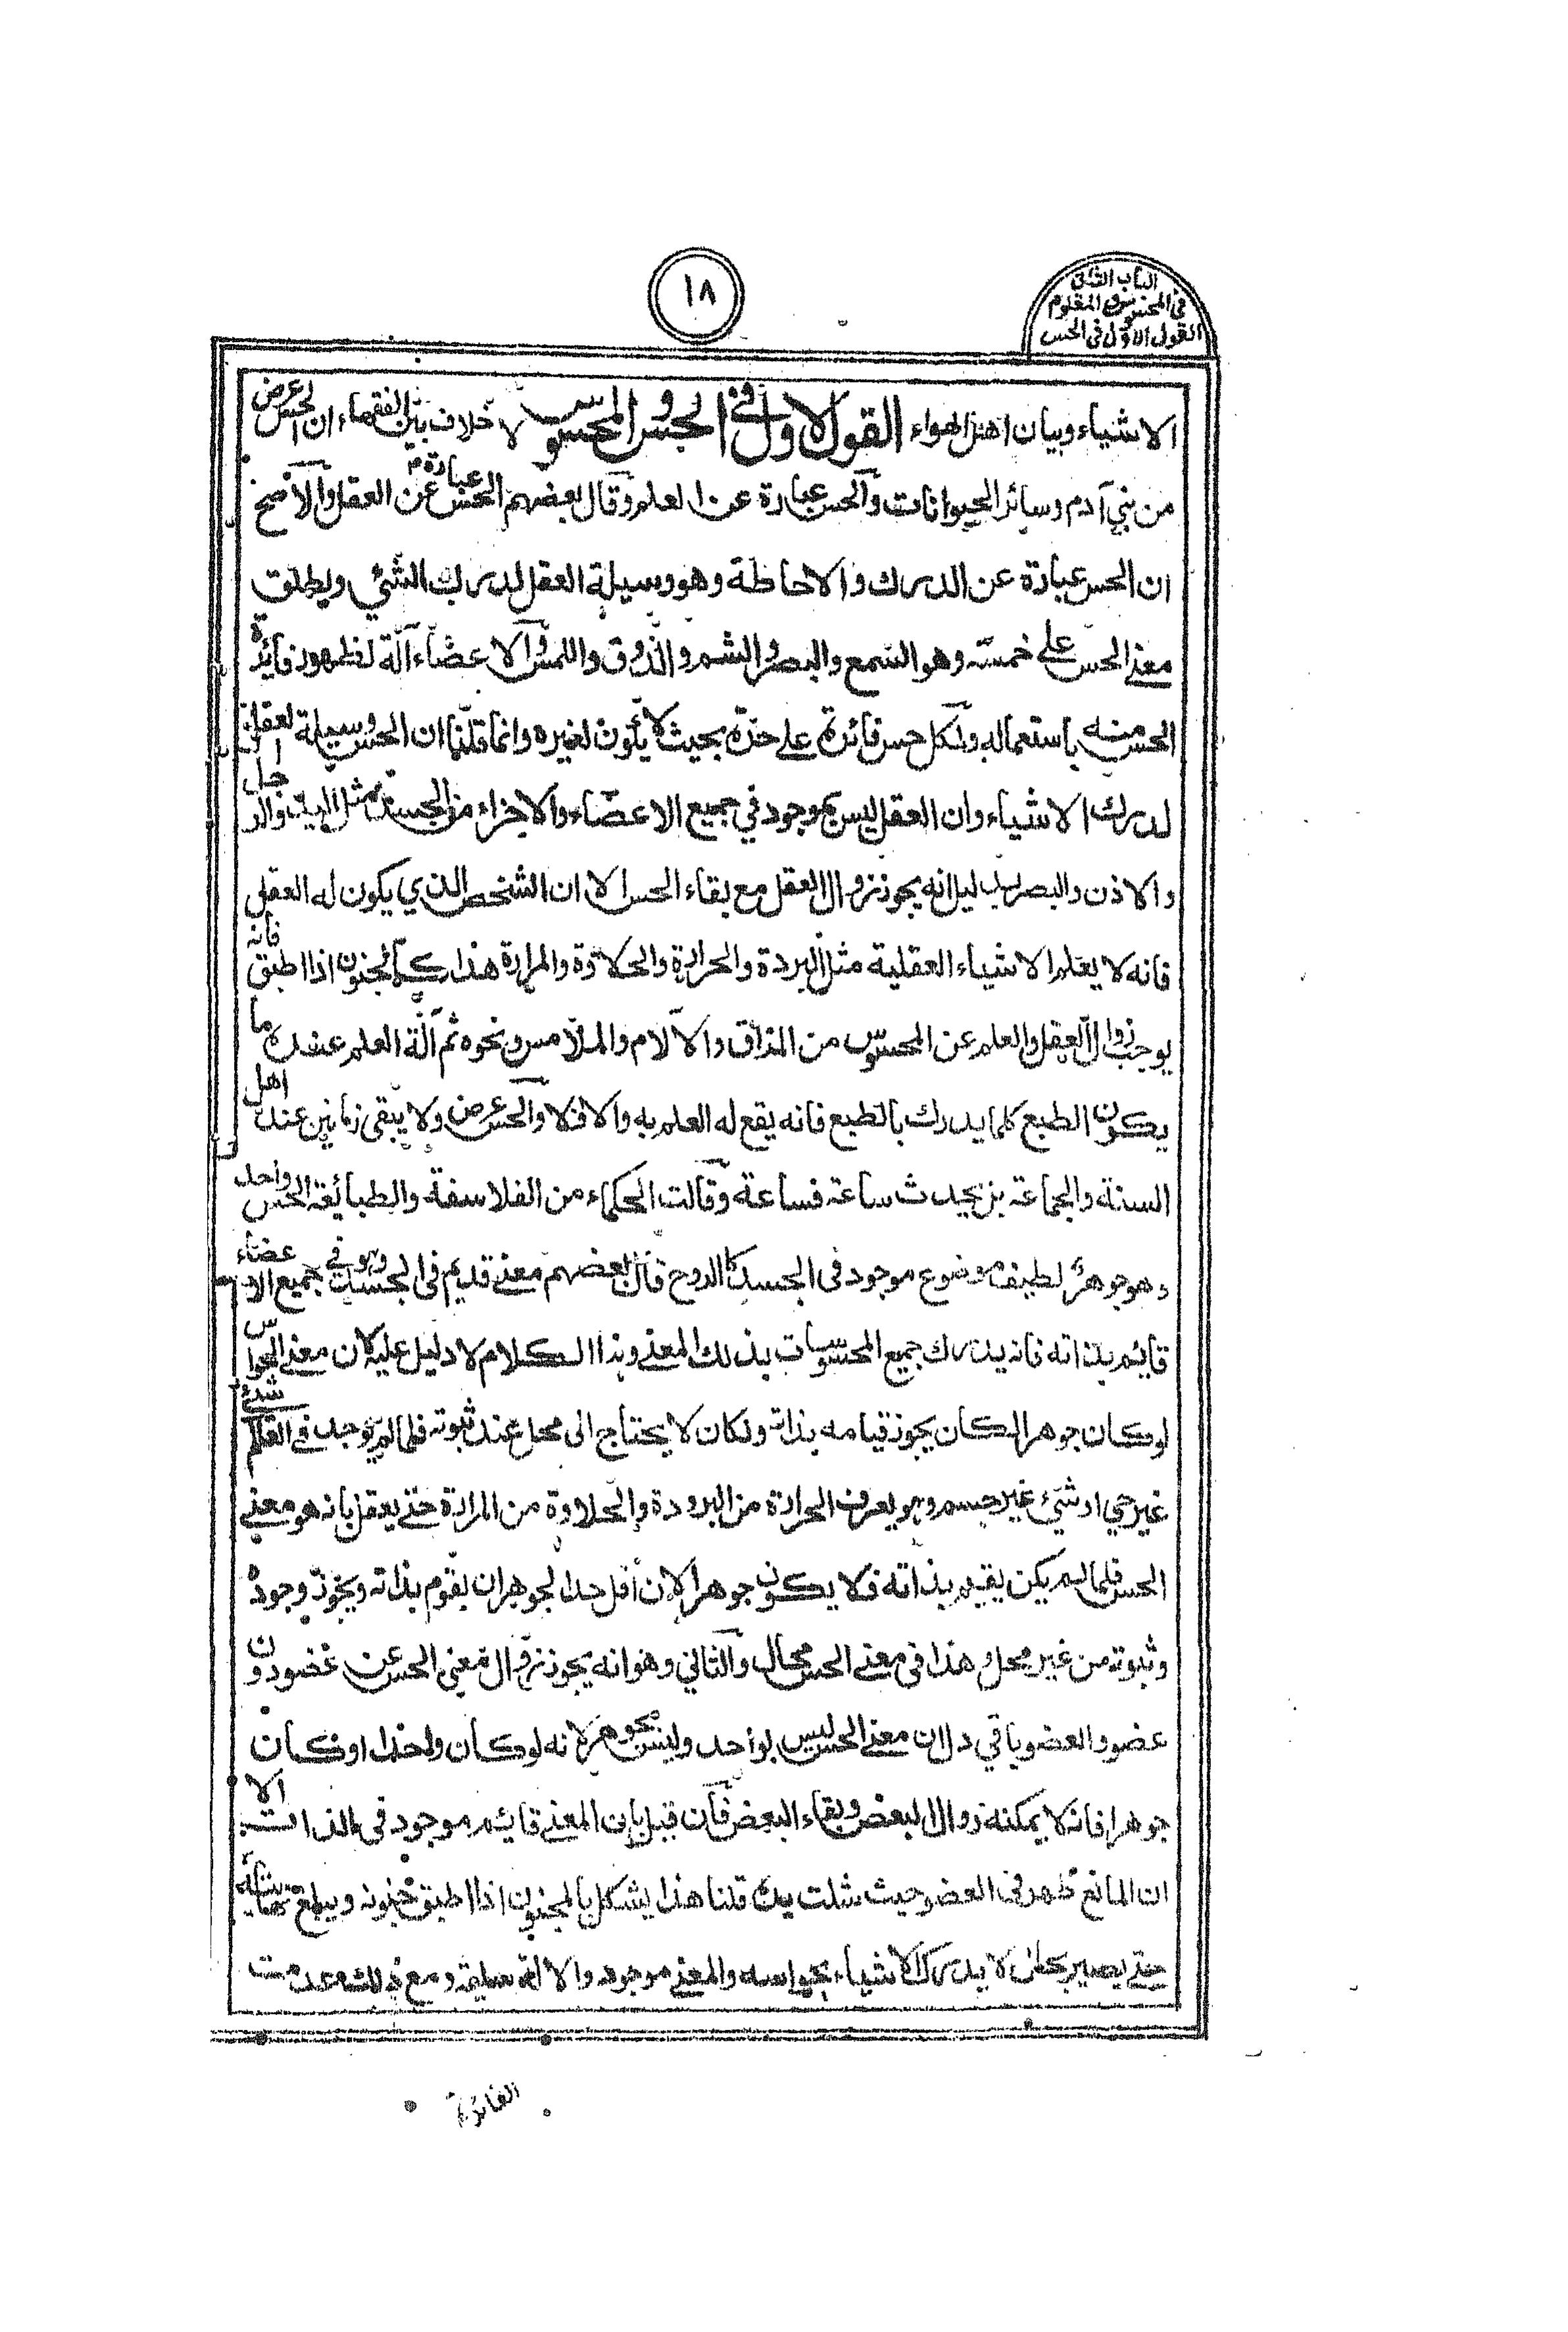 ١٨
الباب الثاني
في المحسوس والمعلوم
القول الاول في الحس
الاشياء وبيان اهل الهواء القول الاول في الحس والمحسوس لا خلاف بين الفقهاء ان الحس عرض
من بني آدم وسائر الحيوانات والحس عبارة عن العلم وقال بعضهم الحس عبارة عن العقل والاصح
ان الحس عبارة عن الدرك والاحاطة وهو وسيلة العقل لدرك الشئي ويطلق
معنى الحس على خمسة وهو السمع والبصر والشم والذوق واللمس والاعضاء آلة لظهور فائدة
الحس منه باستعماله ولكل حس فائدة على حدة بحيث لا يكون لغيره وانما قلنا ان الحس وسيلة العقل
لدرك الاشياء وان العقل ليس بموجود في جميع الاعضاء والاجزاء من الجسد مثل اليد والرجل
والاذن والبصر بدليل انه يجوز زوال العقل مع بقاء الحس الا ان الشخص الذي يكون له العقل
فانه لا يعلم الاشياء العقلية مثل البردة والحرارة والحلاوة والمرارة هذا كالمجنون اذا اطبق فانه
يوجب زوال العقل والعلم عن المحسوس من المذاق والآلام والملامس ونحوه ثم آلة العلم عنده ما
يكون الطبع كلما يدرك بالطبع فانه يقع له العلم به والا فلا والحس عرض ولا يبقى زمانين عند اهل
السنة والجماعة بل يحدث ساعة فساعة وقالت الحكماء من الفلاسفة والطبائعة الحس واحد
وهو جوهر لطيف موضوع موجود في الجسد كالروح قال بعضهم معنى قديم في الجسد وهو في جميع الاعضاء
قايم بذاته فانه يدرك جميع المحسوسات بذلك المعنى وهذا الكلام لا دليل عليه لان معنى الحواس
لو كان جوهرا لكان يجوز قيامه بذاته ولكان لا يحتاج الى محل عند ثبوته فلما لم يوجد في العالم شئ
غير حي او شئ غير جسم وهو يعرف الحرارة من البرودة والحلاوة من المرارة حتى يعقل بانه هو معنى
الحس فلما لم يكن يقيم بذاته فلا يكون جوهرا لان اقل حد الجوهر ان يقوم بذاته ويجوز وجوده
وثبوته من غير محل وهذا في معنى الحس محال والثاني وهو انه يجوز زوال معنى الحس عن عضو دون
عضو والعضو باقي دل ان معنى الحس ليس بواحد وليس بجوهر لانه لو كان واحدا او كان
جوهرا فانه لا يمكنه زوال البعض وبقاء البعض فان قيل بان المعنى قايم موجود في الذات الا
ان المانع ظهر في العضو حيث شلت يده قلنا هذا يشكل بالمجنون اذا اطبق جنونه ويبلغ نهايته
حتى يصير بحال لا يدرك الاشياء بحواسه والمعنى موجود والالة سليمة ومع ذلك عدمت
الفائدة